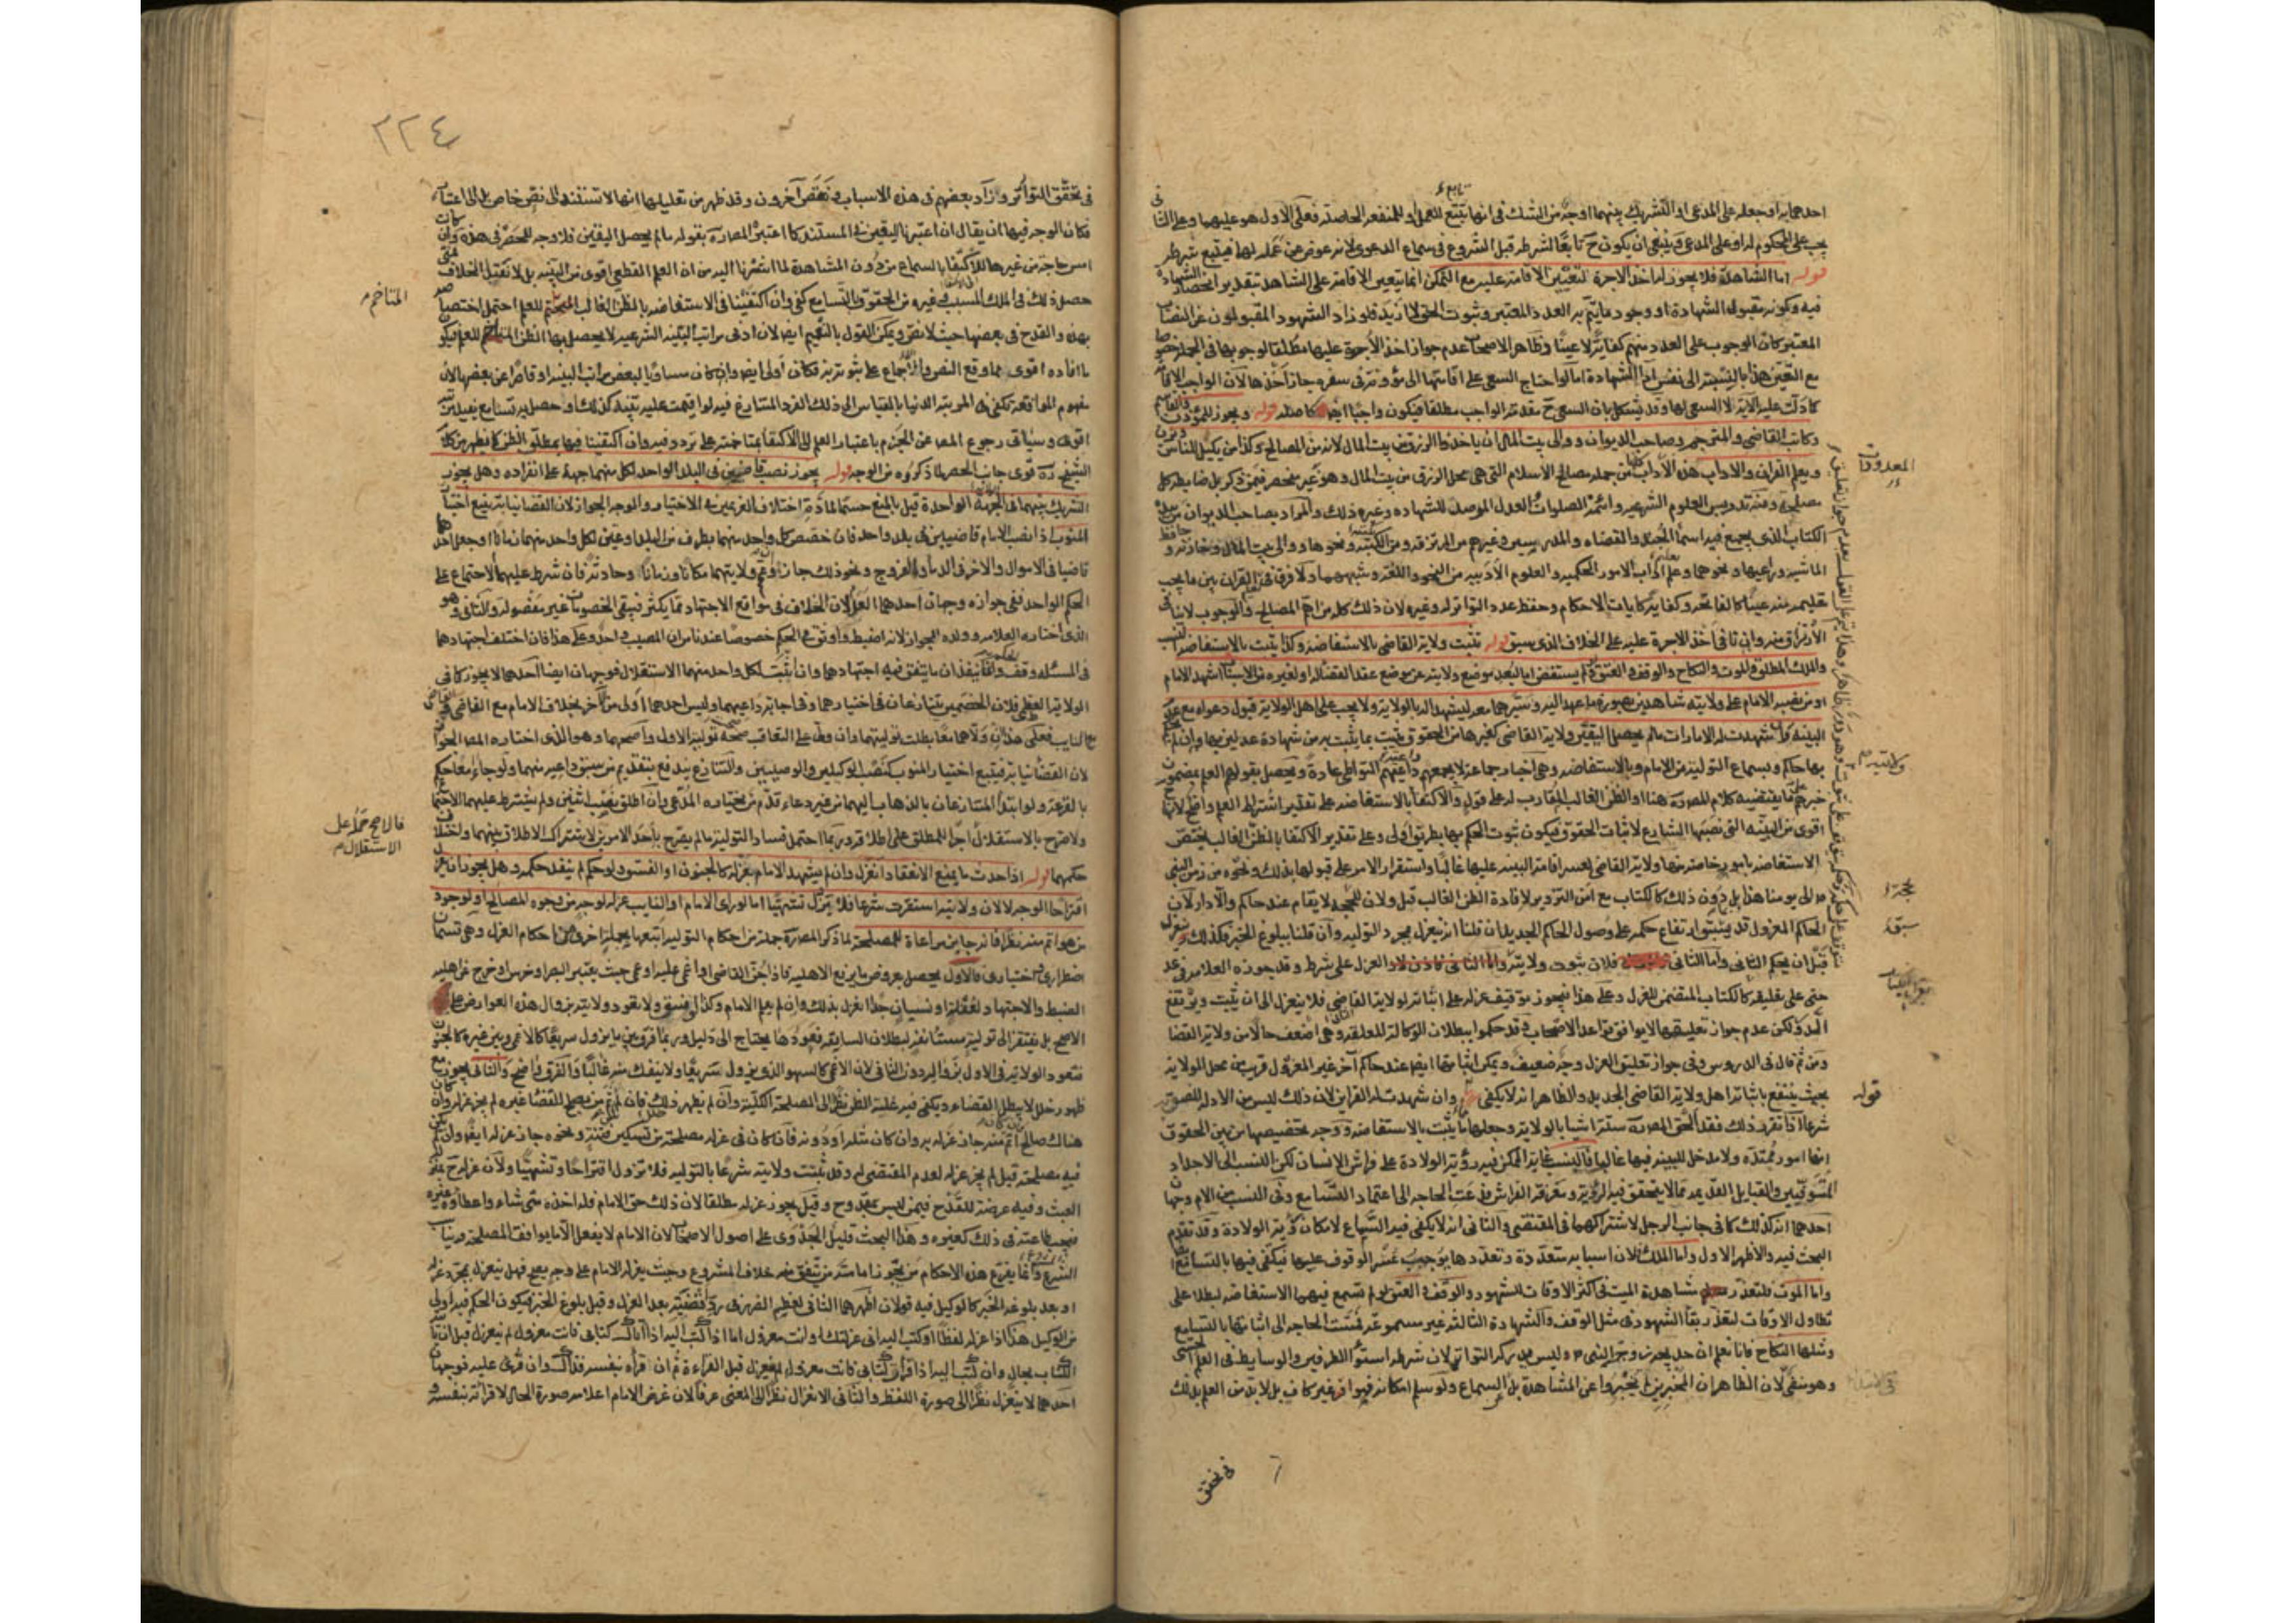 احدهما به او جعله على المدعى او التشريك بينهما اوجه من الشك في انها تتبع للعمل او للمنفعة الحاصلة فعلى الاول هو عليهما وعلى الثاني
يجب على المحكوم له او على المدعى وينبغي ان يكون ح تابعا لشرطه قبل الشروع في سماع الدعوى لانه عوض عن عمله لهما فيتبع شرطه
قوله اما الشاهد فلا يجوز له اخذ الاجرة لتعيين الاقامة عليه مع التمكن انما يتعين الاقامة على الشاهد بتقدير انحصار الشهادة
فيه وكونه مقبول الشهادة او وجود ما يتم به العدد المعتبر وثبوت الحق لا ازيد فلو زاد الشهود المقبولون عن النصاب
المعتبر كان الوجوب على العدد منهم كفاية لا عينا وظاهر الاصحاب عدم جواز اخذ الاجرة عليها مطلقا لوجوبها في الجملة خصوصا
مع التعين هذا بالنسبة الى نفس اداء الشهادة اما لو احتاج السعي على اقامتها الى مؤونة في سفره جاز اخذها لان الواجب الاقامة
كما دلت عليه الاية لا السعي لها وقد يشكل بان السعي ح مقدمة الواجب مطلقا فيكون واجبا ايضا كاصله قوله ويجوز للمؤذن والقاسم
وكاتب القاضي والمترجم وصاحب الديوان ووالي بيت المال ان ياخذوا الرزق من بيت المال لانه من المصالح وكذا من يكيل للناس ويزن
ويعلم القران والاداب هذه الاداب كلها من جملة مصالح الاسلام التي هي محل الرزق من بيت المال وهو غير منحصر فيمن ذكر بل ضابطه كل
مصلحة ومنه تدريس العلوم الشرعية وائمة الصلوات والعدل الموصل للشهادة وغير ذلك والمراد بصاحب الديوان من بيده
الكتاب الذي يجمع فيه اسماء الجند والقضاة والمدرسين وغيرهم من المرتزقة ومن الكتبة ونحوها ووالي بيت المال وخازنه وحافظ
الماشية وراعيها ونحوهما وعلم اداب الامور الحكمية والعلوم الادبية من النحو واللغة وشبههما ولا فرق في القران بين ما يجب
تعليمه منه عينا كالفاتحة وكفاية كايات الاحكام وحفظ عدد التواتر له وغيره لان ذلك كله من اهم المصالح والوجوب لا ينافي
الارتزاق منه وان نافى اخذ الاجرة عليه على الخلاف الذي سبق قوله تثبت ولاية القاضي بالاستفاضة وكذا يثبت بالاستفاضة النسب
والملك المطلق والموت والنكاح والوقف والعتق ولو لم يستفض اما لبعد موضع ولايته عن موضع عقد القضاء له او لغيره من الاسباب اشهد الامام
او من نصبه الامام على ولايته شاهدين بصورة ما عهد اليه وسيرهما معه ليشهدا له بالولاية ولا يجب على اهل الولاية قبول دعواه مع عدم
البينة وان شهدت له الامارات ما لم يحصل اليقين ولاية القاضي كغيرها من الحقوق يثبت بما يثبت به من شهادة عدلين بها وان لم يحكم
بها حاكم وبسماع التولية من الامام وبالاستفاضة وهي اخبار جماعة لا يجمعهم داعية التواطي عادة ويحصل بقولهم العلم بمضمون
خبرهم على ما يقتضيه كلام المصنف هنا او الظن الغالب المقارب له على قول والاكتفاء بالاستفاضة على تقدير اشتراط العلم واضح لانها
اقوى من البينة التي نصبها الشارع لاثبات الحقوق فيكون ثبوت الحكم بها بطريق اولى وعلى تقدير الاكتفاء بالظن الغالب يختص
الاستفاضة بامور خاصة منها ولاية القاضي لعسر اقامة البينة عليها غالبا واستقرار الامر على قبولها بذلك ونحوه من زمن النبي
ص الى يومنا هذا بل بدون ذلك كالكتاب مع امن التزوير لافادة الظن الغالب قبل ولان الحجة لا تقام عند حاكم والا دار لان
الحاكم المعزول قد يثبتوا ارتفاع حكمه على وصول الحاكم الجديد ان قلنا انه ينعزل بمجرد التولية وان قلنا ببلوغ الخبر فكذلك وينعزل
قبل ان يحكم الثاني واما الثاني فلان ثبوت ولايته العزل على شرط وقد جوزه العلامة في عد
حتى على تعليقه كالكتاب المتضمن للعزل وعلى هذا فيجوز توقيف عزله على اثباته لولاية القاضي فلا ينعزل الى ان يثبت ويرتفع
الدور لكن عدم جواز تعليقها لا يوافق قواعد الاصحاب وقد حكموا ببطلان الوكالة المعلقة وهي اضعف حالا من ولاية القضا
ومن ثم قال في الدروس وفي جواز تعليق العزل وجه ضعيف ويمكن اثباتها ايضا عند حاكم آخر غير المعزول قريب من محل الولاية
بحيث ينتفع باثباته اهل ولاية القاضي الجديد والظاهر انه لا يكفي وان شهدت له القراين لان ذلك ليس من الادلة المنصوبة
شرعا اذا تقرر ذلك فقد الحق المصنف ستة اشياء بالولاية وجعلها مما يثبت بالاستفاضة ووجه تخصيصها من بين الحقوق
انها امور ممتدة ولا مدخل للبينة فيها غالبا فالنسب غاية الممكن فيه رؤية الولادة على فراش الانسان لكن النسب الى الاجداد
المتوفين والقبايل القديمة مما لا يتحقق فيه الرؤية ومعرفة الفراش فدعت الحاجة الى اعتماد التسامع وفي النسب من الام وجهان
احدهما انه كذلك كما في جانب الرجل لاشتراكهما في المقتضي والثاني انه لا يكفي فيه السماع لامكان رؤية الولادة وقد تقدم
البحث فيه والاظهر الاول واما الملك فلان اسبابه متعددة وتعددها يوجب عسر الوقوف عليها فيكفي فيها بالتسامع
واما الموت فلتعذر مشاهدة الميت في اكثر الاوقات للشهود والوقف والعتق لو لم تسمع فيهما الاستفاضة لبطلا على
تطاول الاوقات لتعذر بقاء الشهود في مثل الوقف والشهادة الثالثة غير مسموعة فمست الحاجة الى اثباتها بالتسامع
ومثلها النكاح فانا نعلم ان خديجة زوجة النبي ص وليس مدركه التواتر لان شرطه استواء الطرفين والوسايط في العلم الحسي
وهو منفي لان الظاهر ان المخبرين لم يخبروا عن المشاهدة بل السماع ولو سلم امكانه فهو غير كاف بل لا بد من العلم بذلك
المعدودات
ولايته
بحجة
سبقه
قوله
في تحقق
٢٢٤
في تحقق التواتر وزاد بعضهم في هذه الاسباب ونقص آخرون وقد ظهر من تعليلها انها لا تستند الى نص خاص بل الى اعتبار
فكان الوجه فيها ان يقال ان اعتبرنا اليقين في المستند كما اعتبره المصنف بقوله ما لم يحصل اليقين فلا وجه للحصر في هذه وان كانت
امس حاجة من غيرها للاكتفاء بالسماع من دون المشاهدة لما اشرنا اليه من ان العلم القطعي اقوى من البينة بل لا تقبل الخلاف فمتى
حصل ذلك في الملك المسبب وفي غيره من الحقوق بالتسامع كفى وان اكتفينا في الاستفاضة بالظن الغالب المتاخم للعلم احتمل اختصاصه
بهذه والقدح في بعضها حيث لا نص ويمكن القول بالتعميم ايضا لان ادنى مراتب البينة الشرعية لا يحصل بها الظن المتاخم للعلم فيكون
ما افاده اقوى مما وقع النص والاجماع على ثبوته به فكان اولى ايضا وان كان مساويا لبعض مراتب البينة او قاصرا عن بعضها لان
مفهوم الموافقة يكفي في المرتبة الدنيا بالقياس الى ذلك الفرد المتنازع فيه لو اقيمت عليه بينة كذلك او حصل به تسامع يفيد مرتبة
اقوى وسياتي رجوع المصنف عن الجزم باعتبار العلم الى الاكتفاء بمتاخمته على تردد فيه وان اكتفينا فيها بمطلق الظن كما يظهر من كلام
الشيخ ره قوى جانب الحصر لما ذكروه من الوجه قوله يجوز نصب قاضيين في البلد الواحد لكل منهما جهة على انفراده وهل يجوز
التشريك بينهما في الجهة الواحدة قيل بالمنع حسما لمادة اختلاف الغريمين في الاختيار والوجه الجواز لان القضا نيابة تتبع اختيار
المنوب اذا نصب الامام قاضيين في بلد واحد فان خصص كل واحد منهما بطرف من البلد او عين لكل واحد منهما زمانا او جعل احدهما
قاضيا في الاموال والاخر في الدماء والفروج ونحو ذلك جاز وان عمم ولايتهما مكانا وزمانا وحادثة فان شرط عليهما الاجتماع على
الحكم الواحد ففي جوازه وجهان احدهما العدم لان الخلاف في مواقع الاجتهاد مما يكثر فتبقى الخصومات غير مفصولة والثاني وهو
الذي اختاره العلامة وولده الجواز لانه اضبط واوثق في الحكم خصوصا عندنا من ان المصيب واحد وعلى هذا فان اختلف اجتهادهما
في المسئلة وقف الحكم وانما ينفذان ما يتفق فيه اجتهادهما وان اثبت لكل واحد منهما الاستقلال فوجهان ايضا احدهما لا يجوز كما في
الولاية العظمى فلان الخصمين يتنازعان في اختيارهما وفي اجابة داعيهما وليس احدهما اولى من الآخر بخلاف الامام مع القاضي
مع النايب فعلى هذا ان ولاهما معا بطلت توليتهما وان ولى على التعاقب صحت تولية الاول واصحهما وهو الذي اختاره المصنف الجواز
لان القضا نيابة فيتبع اختيار المنوب كنصب الوكيلين والوصيين والتنازع يندفع بتقديم من سبق داعيه منهما ولو جاءا معا حكم
بالقرعة ولو ابتدأ المتنازعان بالذهاب اليهما من غير دعاء قدم من يختاره المدعي وان اطلق نصب اثنين ولم يشترط عليهما الاجتماع
ولا صرح بالاستقلال اجراء للمطلق على اطلاقه وربما احتمل فساد التولية ما لم يصرح باحد الامرين لاشتراك الاطلاق بينهما واختلاف
حكمهما قوله اذا حدث ما يمنع الانعقاد انعزل وان لم يشهد الامام بعزله كالجنون او الفسوق ولو حكم لم ينفذ حكمه وهل يجوز ان يعزل
اقتراحا الوجه لا لان ولايته استقرت شرعا فلا تزول تشهيا اما لو راى الامام او النايب عزله لوجه من وجوه المصالح او لوجود
من هو اتم منه نظرا فانه جايز مراعاة للمصلحة لما ذكر المصنف جملة من احكام التولية اتبعها بجملة اخرى من احكام العزل وهي قسمان
اضطراري واختياري فالاول يحصل بعروض ما يرفع الاهلية فاذا جن القاضي او اغمي عليه او عمي حيث يعتبر البصر او خرس او خرج عن اهلية
الضبط والاجتهاد لغفلة او نسيان جدا انعزل بذلك وان لم يعلم الامام وكذا لو فسق ولا يعود ولايته بزوال هذه العوارض على
الاصح بل يفتقر الى تولية مستأنفة لبطلان السابقة فعودها يحتاج الى دليل وربما فرق بين ما يزول سريعا كالاغماء وبين غيره كالجنون
فتعود الولاية في الاول بزواله دون الثاني لان الاغماء كالسهو الذي يزول سريعا ولا ينفك منه غالبا والفرق واضح والثاني يجوز مع
ظهور خلل لا يبطل القضاء ويكفي فيه غلبة الظن نظرا الى المصلحة الكلية وان لم يظهر ذلك فان لم يكن ثم من يصلح للقضاء غيره لم يجز عزله وان كان
هناك صالح فان كان اتم منه جاز عزله به وان كان مثله او دونه فان كان في عزله مصلحة من تسكين فتنة ونحوه جاز عزله ايضا وان لم يكن
فيه مصلحة قيل لم يجز عزله لعدم المقتضي له وقد ثبتت ولايته شرعا بالتولية فلا تزول اقتراحا وتشهيا ولان عزله ح بمنزلة
العبث وفيه عرضة للقدح فيمن ليس بمقدوح وقيل يجوز عزله مطلقا لان ذلك حق الامام فله اخذه متى شاء واعطاؤه غيره
فيجب طاعته في ذلك كغيره وهذا البحث قليل الجدوى على اصول الاصحاب لان الامام لا يفعل الا ما يوافق المصلحة وينا
الشرع وانما يفرع هذه الاحكام من يجوز امامة من يتفق منه خلاف المشروع وحيث يعزله الامام على وجه يصح فهل ينعزل بمجرد عزله
او بعد بلوغه الخبر كالوكيل فيه قولان اظهرهما الثاني لعظيم الضرر في رد اقضيته بعد العزل وقبل بلوغ الخبر فيكون الحكم فيه اولى
من الوكيل هذا اذا عزله لفظا او كتب اليه اني عزلتك او انت معزول اما اذا كتب اليه اذا اتاك كتابي فانت معزول لم ينعزل قبل ان ياتيه
الكتاب بحال وان كتب اليه اذا قرأت كتابي فانت معزول لم ينعزل قبل القراءة ثم ان قرأه بنفسه فذاك وان قرئ عليه فوجهان
احدهما لا ينعزل نظرا الى صورة اللفظ والثاني الانعزال نظرا الى المعنى عرفا لان غرض الامام اعلامه صورة الحال لا قرائته بنفسه و
المتاخم
فالاصح حمله على
الاستقلال